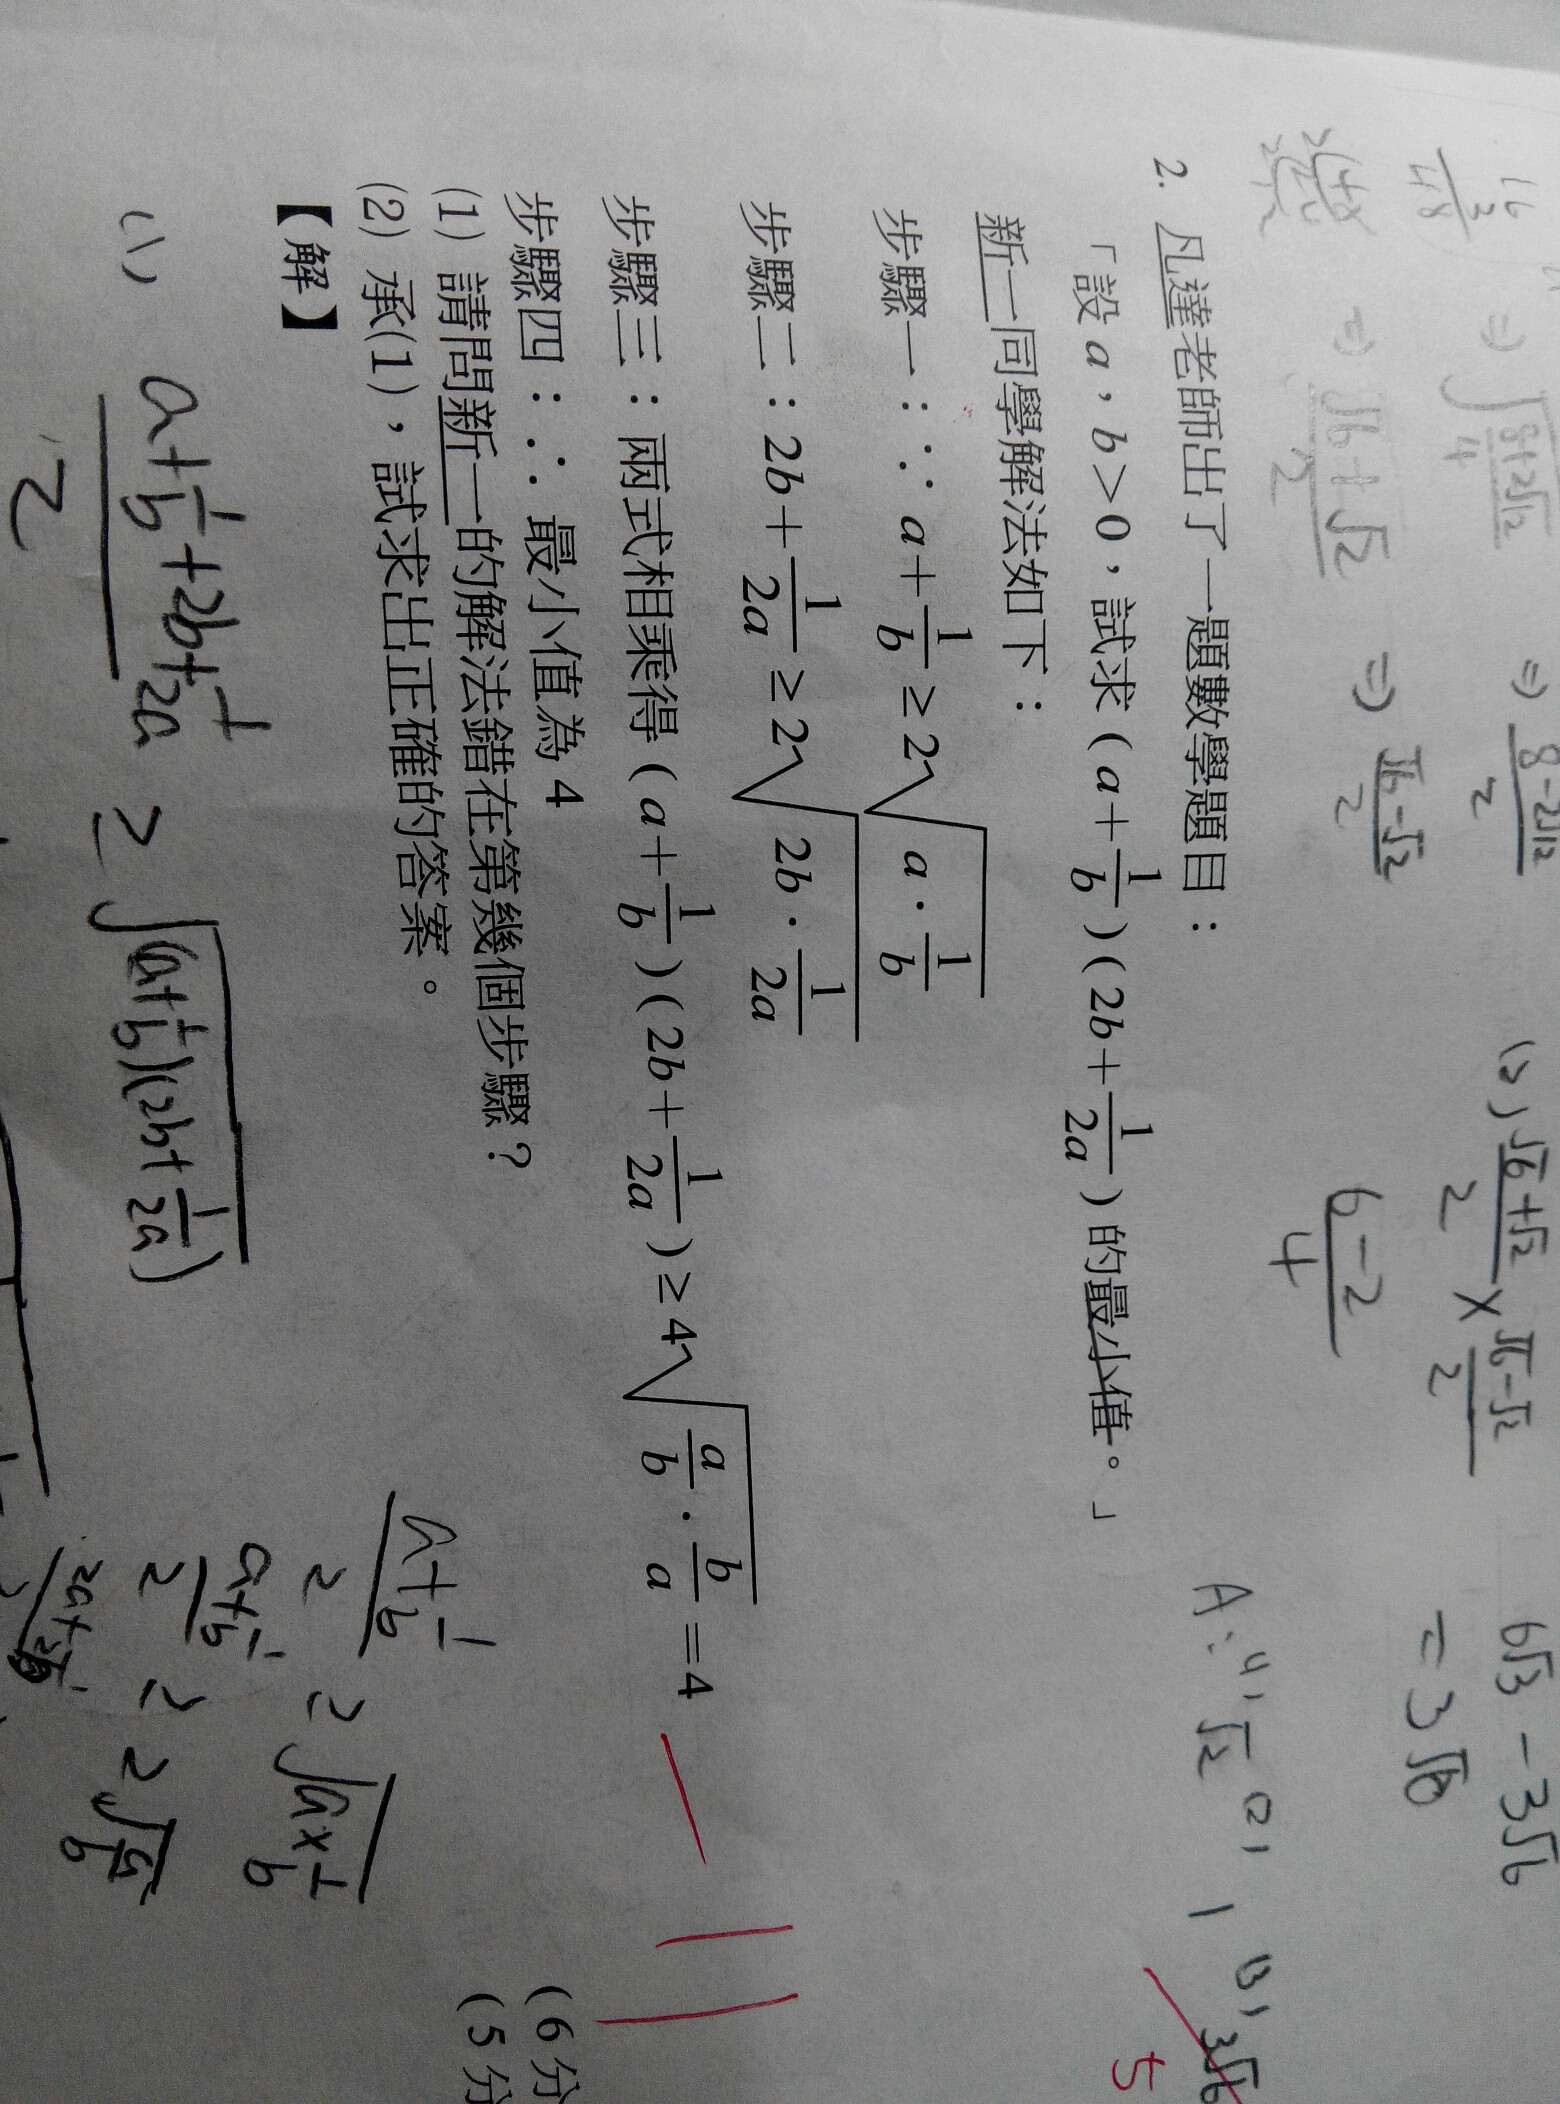 16
3
48
⇒ √(8+2√12)/4
⇒ (8-2√12)/2
(2) (√6+√2)/2 × (√6-√2)/2
6√3 - 3√6
⇒ (√6+√2)/2
⇒ (√6-√2)/2
(6-2)/4
= 3√6
A: (1) √2 (2) 1 (3) 3√6
5
2. 凡達老師出了一題數學題目：
「設 a，b＞0，試求 (a+1/b)(2b+1/2a) 的最小值。」
新一同學解法如下：
步驟一：∵ a+1/b ≥ 2√(a·1/b)
步驟二：2b+1/2a ≥ 2√(2b·1/2a)
步驟三：兩式相乘得 (a+1/b)(2b+1/2a) ≥ 4√(a/b·b/a) =4
步驟四：∴ 最小值為 4
(1) 請問新一的解法錯在第幾個步驟？ (6 分
(2) 承(1)，試求出正確的答案。 (5 分
【解】
(1) (a+1/b+2b+1/2a)/2 ≥ √((a+1/b)(2b+1/2a))
(a+1/b)/2 ≥ √(a×1/b)
(a+1/b)/2 ≥ 2√(a/b)